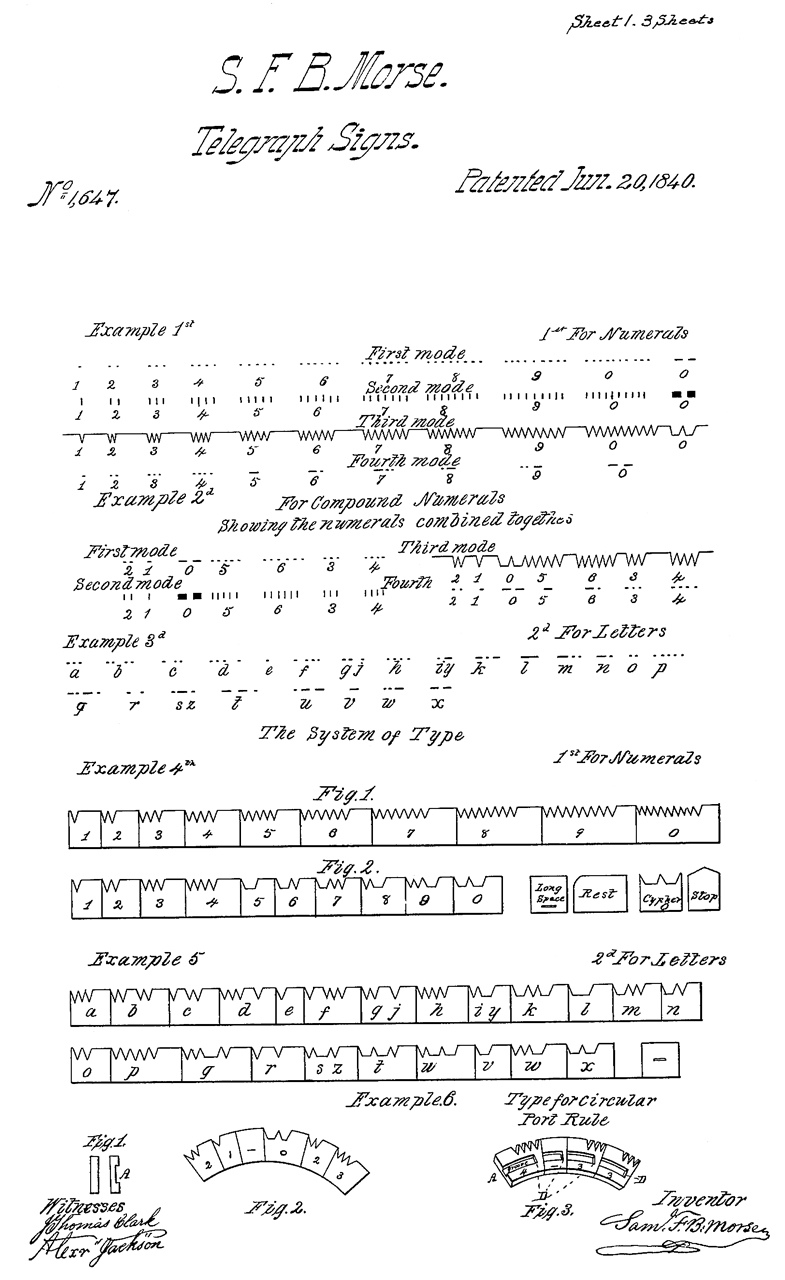 Sheet 1. 3 Sheets
S. F. B. Morse.
Telegraph Signs.
No 1,647.
Patented Jun. 20, 1840.
Example 1st
1st For Numerals
First mode
1 2 3 4 5 6 7 8 9 0 0
Second mode
1 2 3 4 5 6 7 8 9 0 0
Third mode
1 2 3 4 5 6 7 8 9 0 0
Fourth mode
1 2 3 4 5 6 7 8 9 0
Example 2d For Compound Numerals
Showing the numerals combined together
First mode 2 1 0 5 6 3 4
Third mode 2 1 0 5 6 3 4
Second mode 2 1 0 5 6 3 4
Fourth 2 1 0 5 6 3 4
Example 3d
2d For Letters
a b c d e f g j h i y k l m n o p
q r s z t u v w x
The System of Type
Example 4th
1st For Numerals
Fig. 1.
1 2 3 4 5 6 7 8 9 0
Fig. 2.
1 2 3 4 5 6 7 8 9 0 Long Space Rest Cypher Stop
Example 5
2d For Letters
a b c d e f g j h i y k l m n
o p q r s z t u v w x -
Example 6.
Type for Circular
Port Rule
Fig. 1.
A
2 1 - 0 2 3
Fig. 2.
A 4 - 3 3 D
D
Fig. 3.
Witnesses
Thomas Clark
Alexr Jackson
Inventor
Sam. F. B. Morse